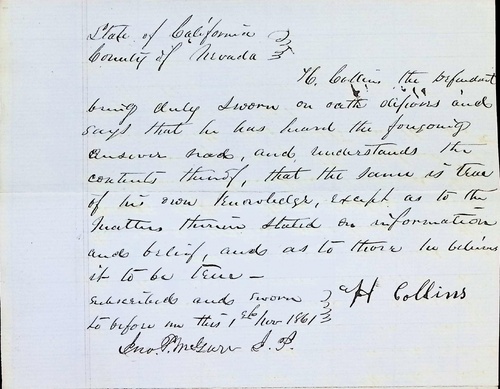 State of California
County of Nevada } ss
H. Collins the Defendant
being duly sworn on oath deposes and
says that he has heard the foregoing
answer read, and understands the
contents thereof, that the same is true
of his own knowledge, except as to the
matters therein stated on information
and belief, and as to those he believes
it to be true —
Subscribed and sworn
H Collins
to before me this 1st Nov 1861
Jno. P. McGurr J. P.